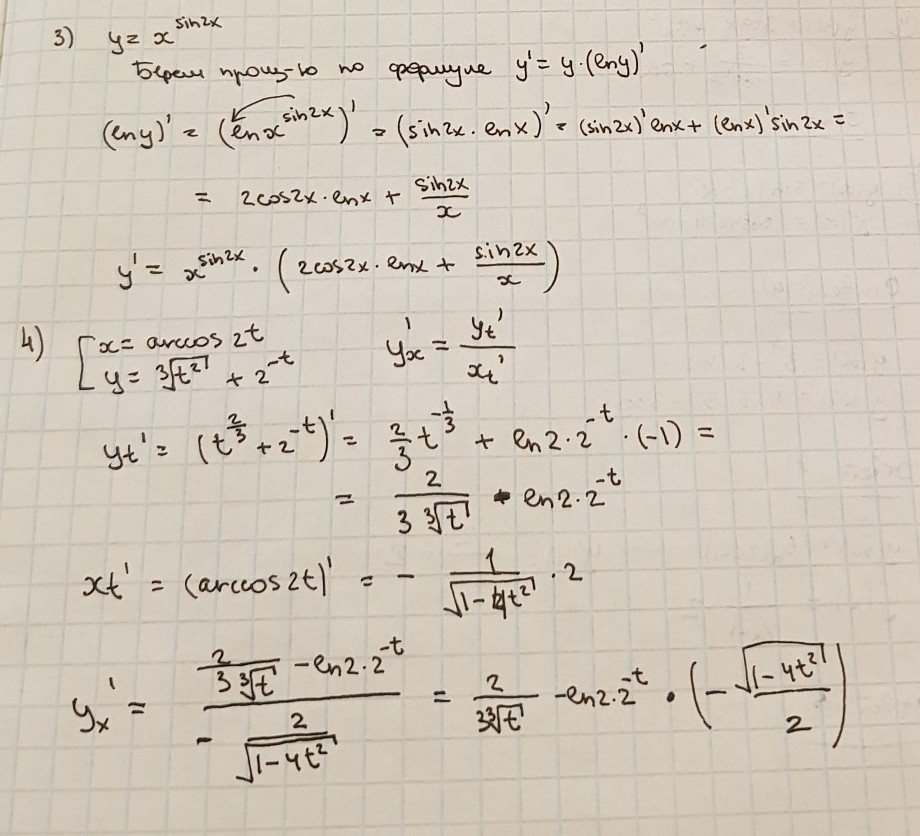 3) y = x^sin2x
Берем произ-ю по формуле y' = y·(lny)'
(lny)' = (lnx^sin2x)' = (sin2x · lnx)' = (sin2x)'lnx + (lnx)'sin2x =
= 2cos2x · lnx + sin2x/x
y' = x^sin2x · (2cos2x · lnx + sin2x/x)
4) [x = arccos 2t
y = ∛t² + 2^-t
y'x = yt'/xt'
yt' = (t^2/3 + 2^-t)' = 2/3 t^-1/3 + ln2 · 2^-t · (-1) =
= 2/(3∛t) - ln2 · 2^-t
xt' = (arccos2t)' = - 1/√(1-4t²) · 2
yx' = (2/(3∛t) - ln2 · 2^-t)/(- 2/√(1-4t²)) = 2/(3∛t) - ln2 · 2^-t · (- √(1-4t²)/2)